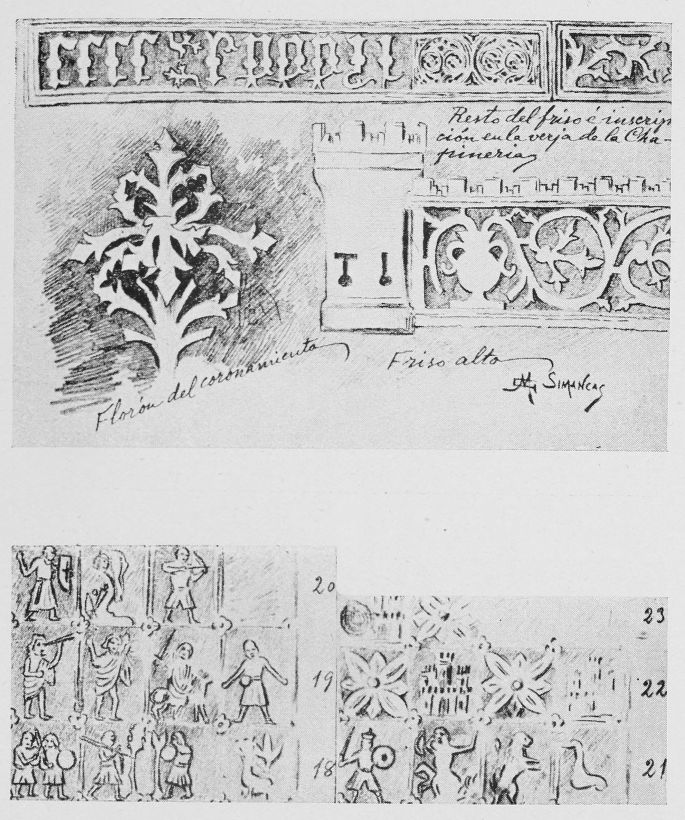 Resto del friso é inscrip
ción en la verja de la Cha-
pineria
Florón del coronamiento
Friso alto
Simancas
20
23
19
22
18
21